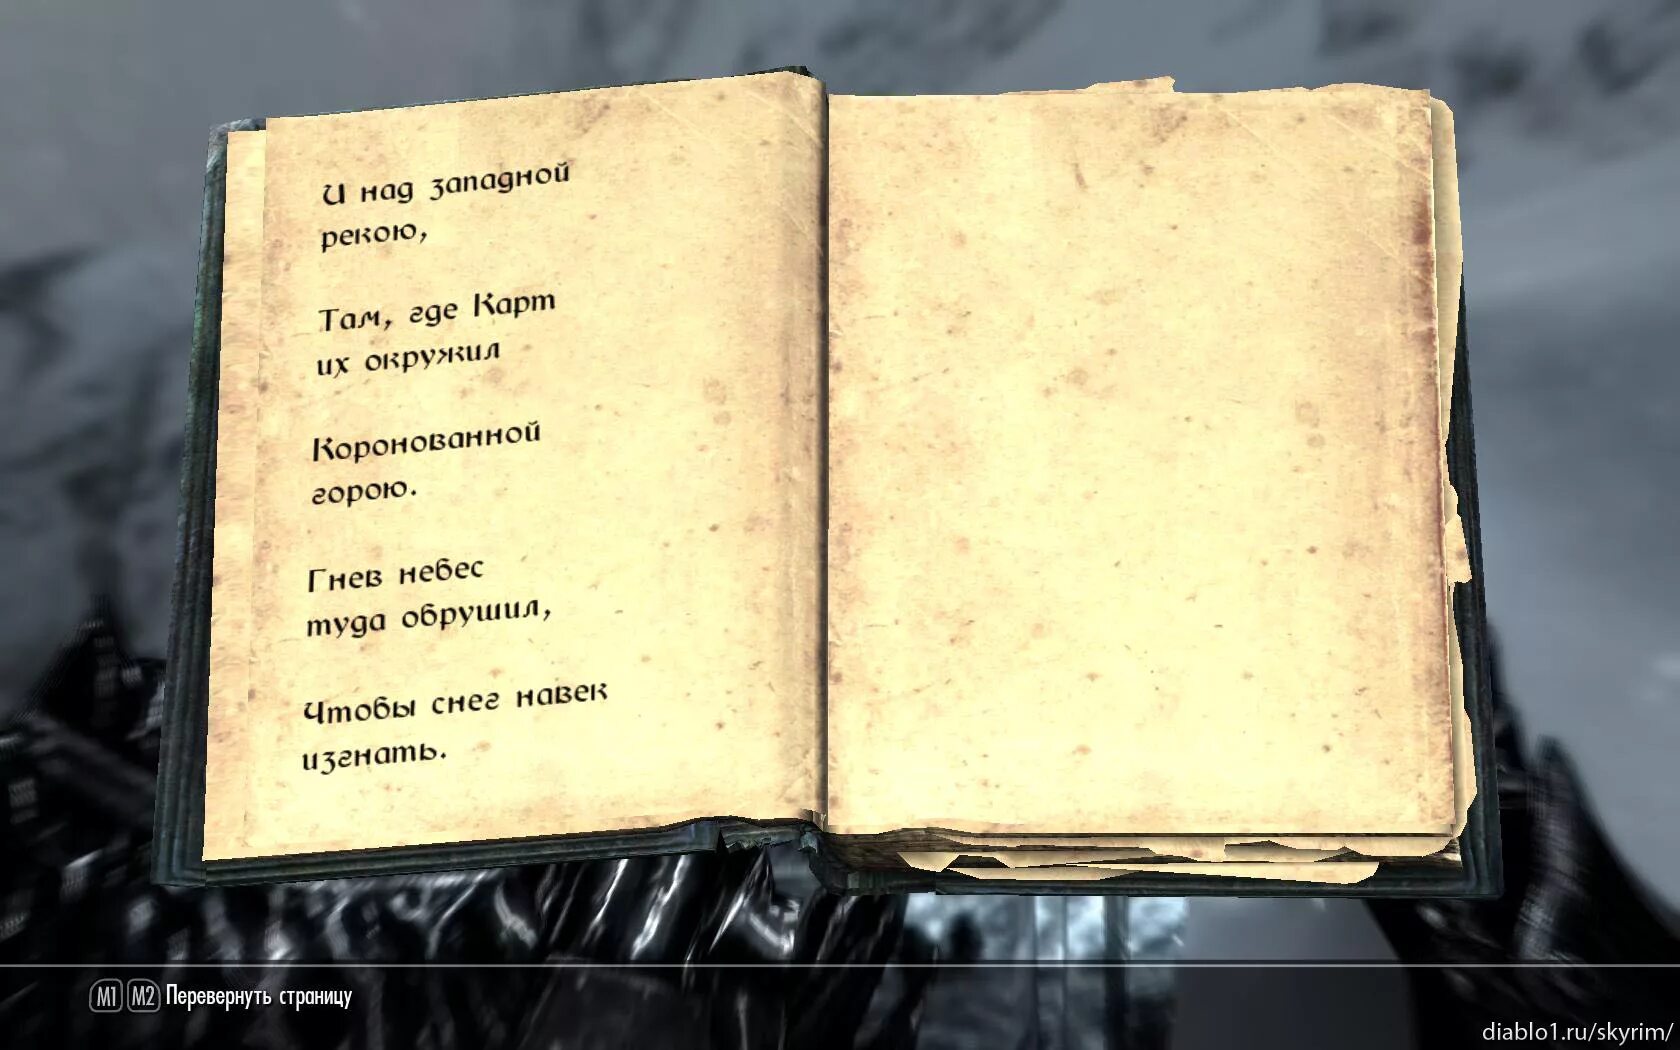 И над западной
рекою,
Там, где Карт
их окружил
Коронованной
горою.
Гнев небес
туда обрушил,
Чтобы снег навек
изгнать.
M1 M2 Перевернуть страницу
diablo1.ru/skyrim/